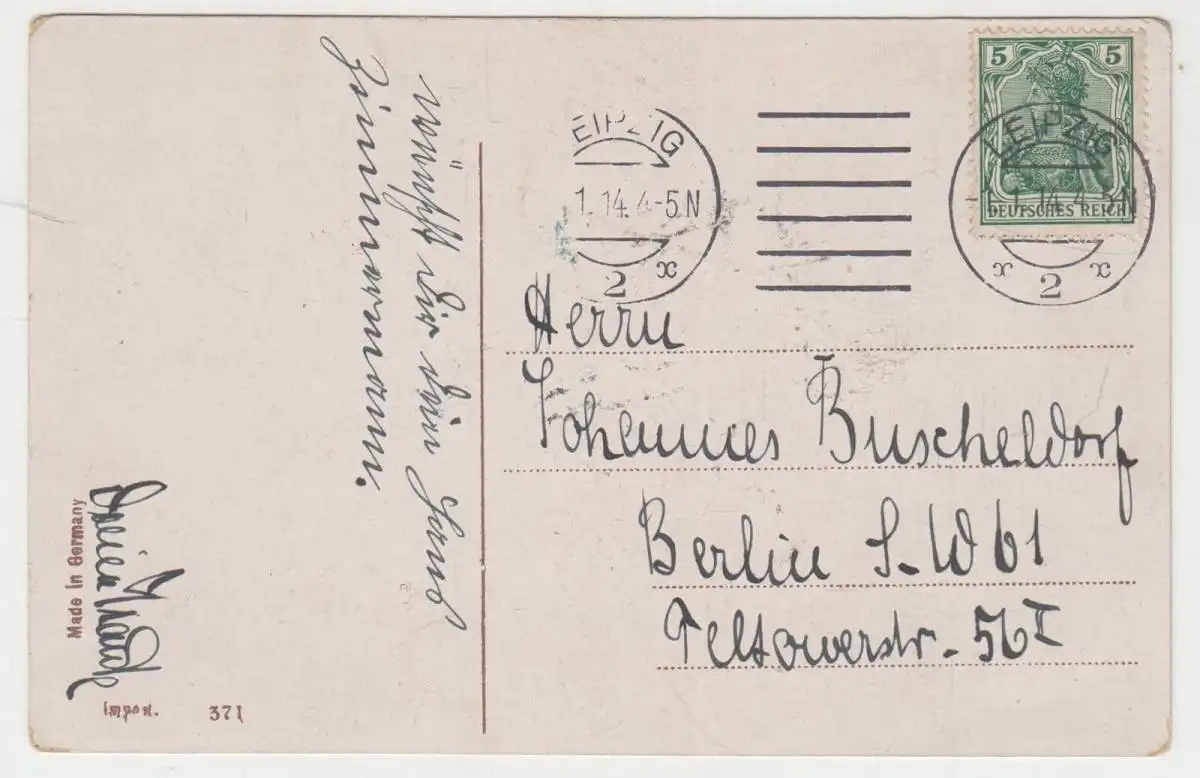 wünscht Dir Dein Hans
Zimmermann.
LEIPZIG
1.1.14.4-5N
2
5 5
DEUTSCHES REICH
LEIPZIG
-1.1.14.4-5N
2
Herrn
Johannes Buscheldorf
Berlin S.W 61
Teltowerstr. 56 I
Made in Germany
Import.
371